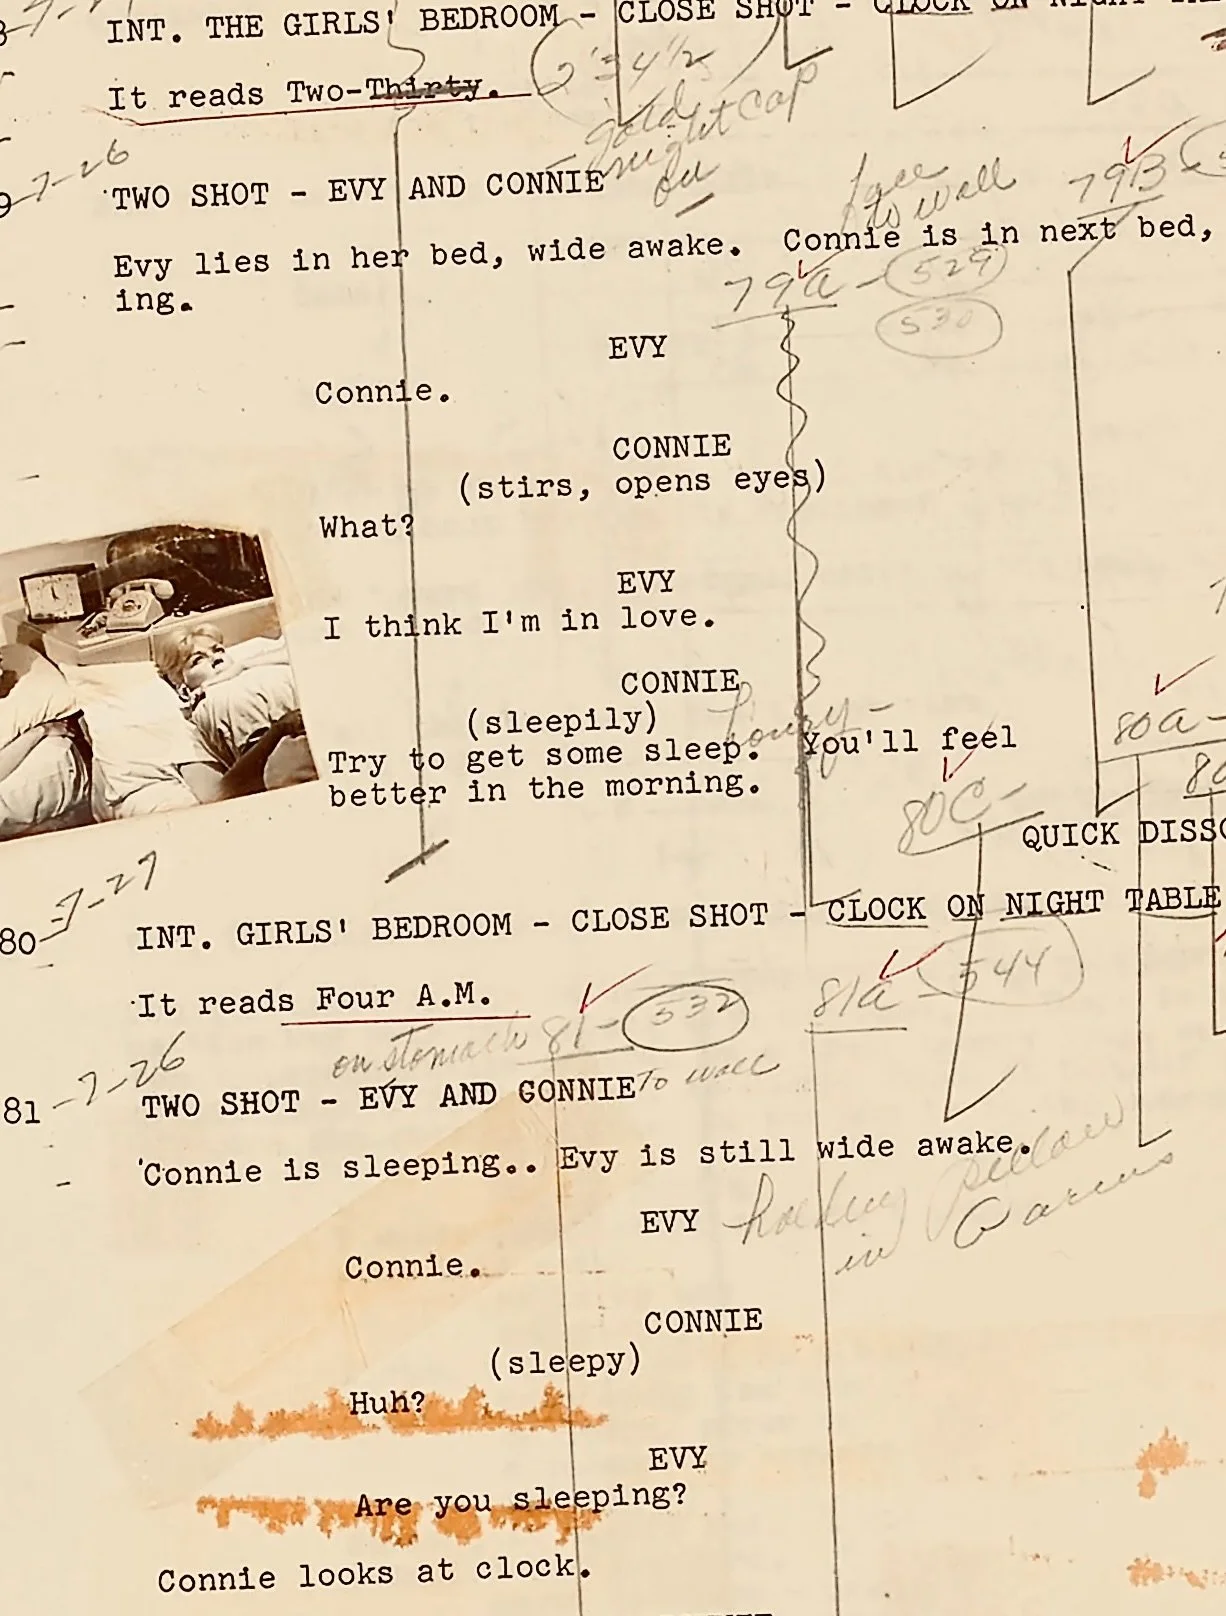 INT. THE GIRLS' BEDROOM - CLOSE SHOT - CLOCK ON NIGHT
2'34½
It reads Two-Thirty.
gold
night cap
on
7-26
TWO SHOT - EVY AND CONNIE
face
to wall
79B
Evy lies in her bed, wide awake. Connie is in next bed,
ing.
79a - 529
530
EVY
Connie.
CONNIE
(stirs, opens eyes)
What?
EVY
I think I'm in love.
CONNIE
(sleepily)
Try to get some sleep. You'll feel
better in the morning.
80a -
80C -
QUICK DISSO
80 - 7-27
INT. GIRLS' BEDROOM - CLOSE SHOT - CLOCK ON NIGHT TABLE
It reads Four A.M.
on stomach 81 - 532
81a - 544
81 - 7-26
TWO SHOT - EVY AND CONNIE To wall
Connie is sleeping.. Evy is still wide awake.
EVY
holding pillow
in arms
Connie.
CONNIE
(sleepy)
Huh?
EVY
Are you sleeping?
Connie looks at clock.